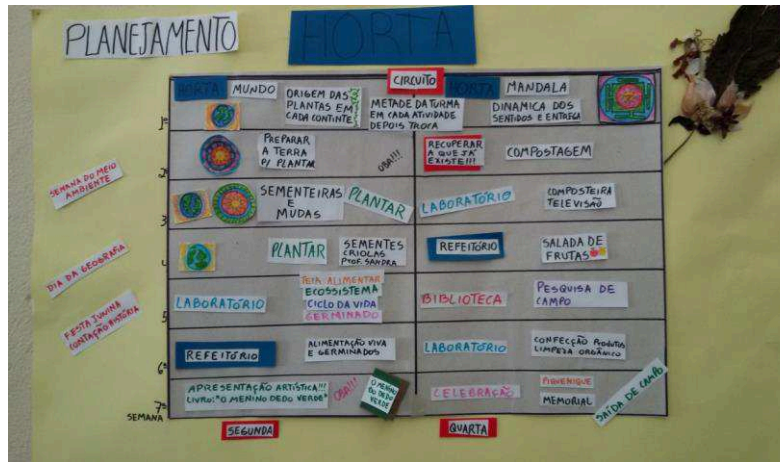 PLANEJAMENTO HORTA
CIRCUITO
HORTA MUNDO
ORIGEM DAS
PLANTAS EM
CADA CONTINTE
METADE DA TURMA
EM CADA ATIVIDADE
DEPOIS TROCA
HORTA MANDALA
DINAMICA DOS
SENTIDOS E ENTREGA
1ª
PREPARAR
A TERRA
P/ PLANTAR
OBA!!!
RECUPERAR
A QUE JÁ
EXISTE!!!
COMPOSTAGEM
2ª
SEMENTEIRAS
E
MUDAS
PLANTAR
LABORATÓRIO
COMPOSTEIRA
TELEVISÃO
3ª
PLANTAR
SEMENTES
CRIOLAS
PROF. SANDRA
REFEITÓRIO
SALADA DE
FRUTAS
LABORATÓRIO
TEIA ALIMENTAR
ECOSSISTEMA
CICLO DA VIDA
GERMINADO
BIBLIOTECA
PESQUISA DE
CAMPO
5ª
REFEITÓRIO
ALIMENTAÇÃO VIVA
E GERMINADOS
LABORATÓRIO
CONFECÇÃO PRODUTOS
LIMPEZA ORGÂNICO
6ª
APRESENTAÇÃO ARTÍSTICA!!!
LIVRO: "O MENINO DEDO VERDE"
OBA!!!
O MENINO
DO DEDO
VERDE
CELEBRAÇÃO
PIQUENIQUE
MEMORIAL
SAÍDA DE CAMPO
7ª
SEMANA
SEGUNDA
QUARTA
SEMANA DO MEIO
AMBIENTE
DIA DA GEOGRAFIA
FESTA JUNINA
CONTAÇÃO HISTÓRIA